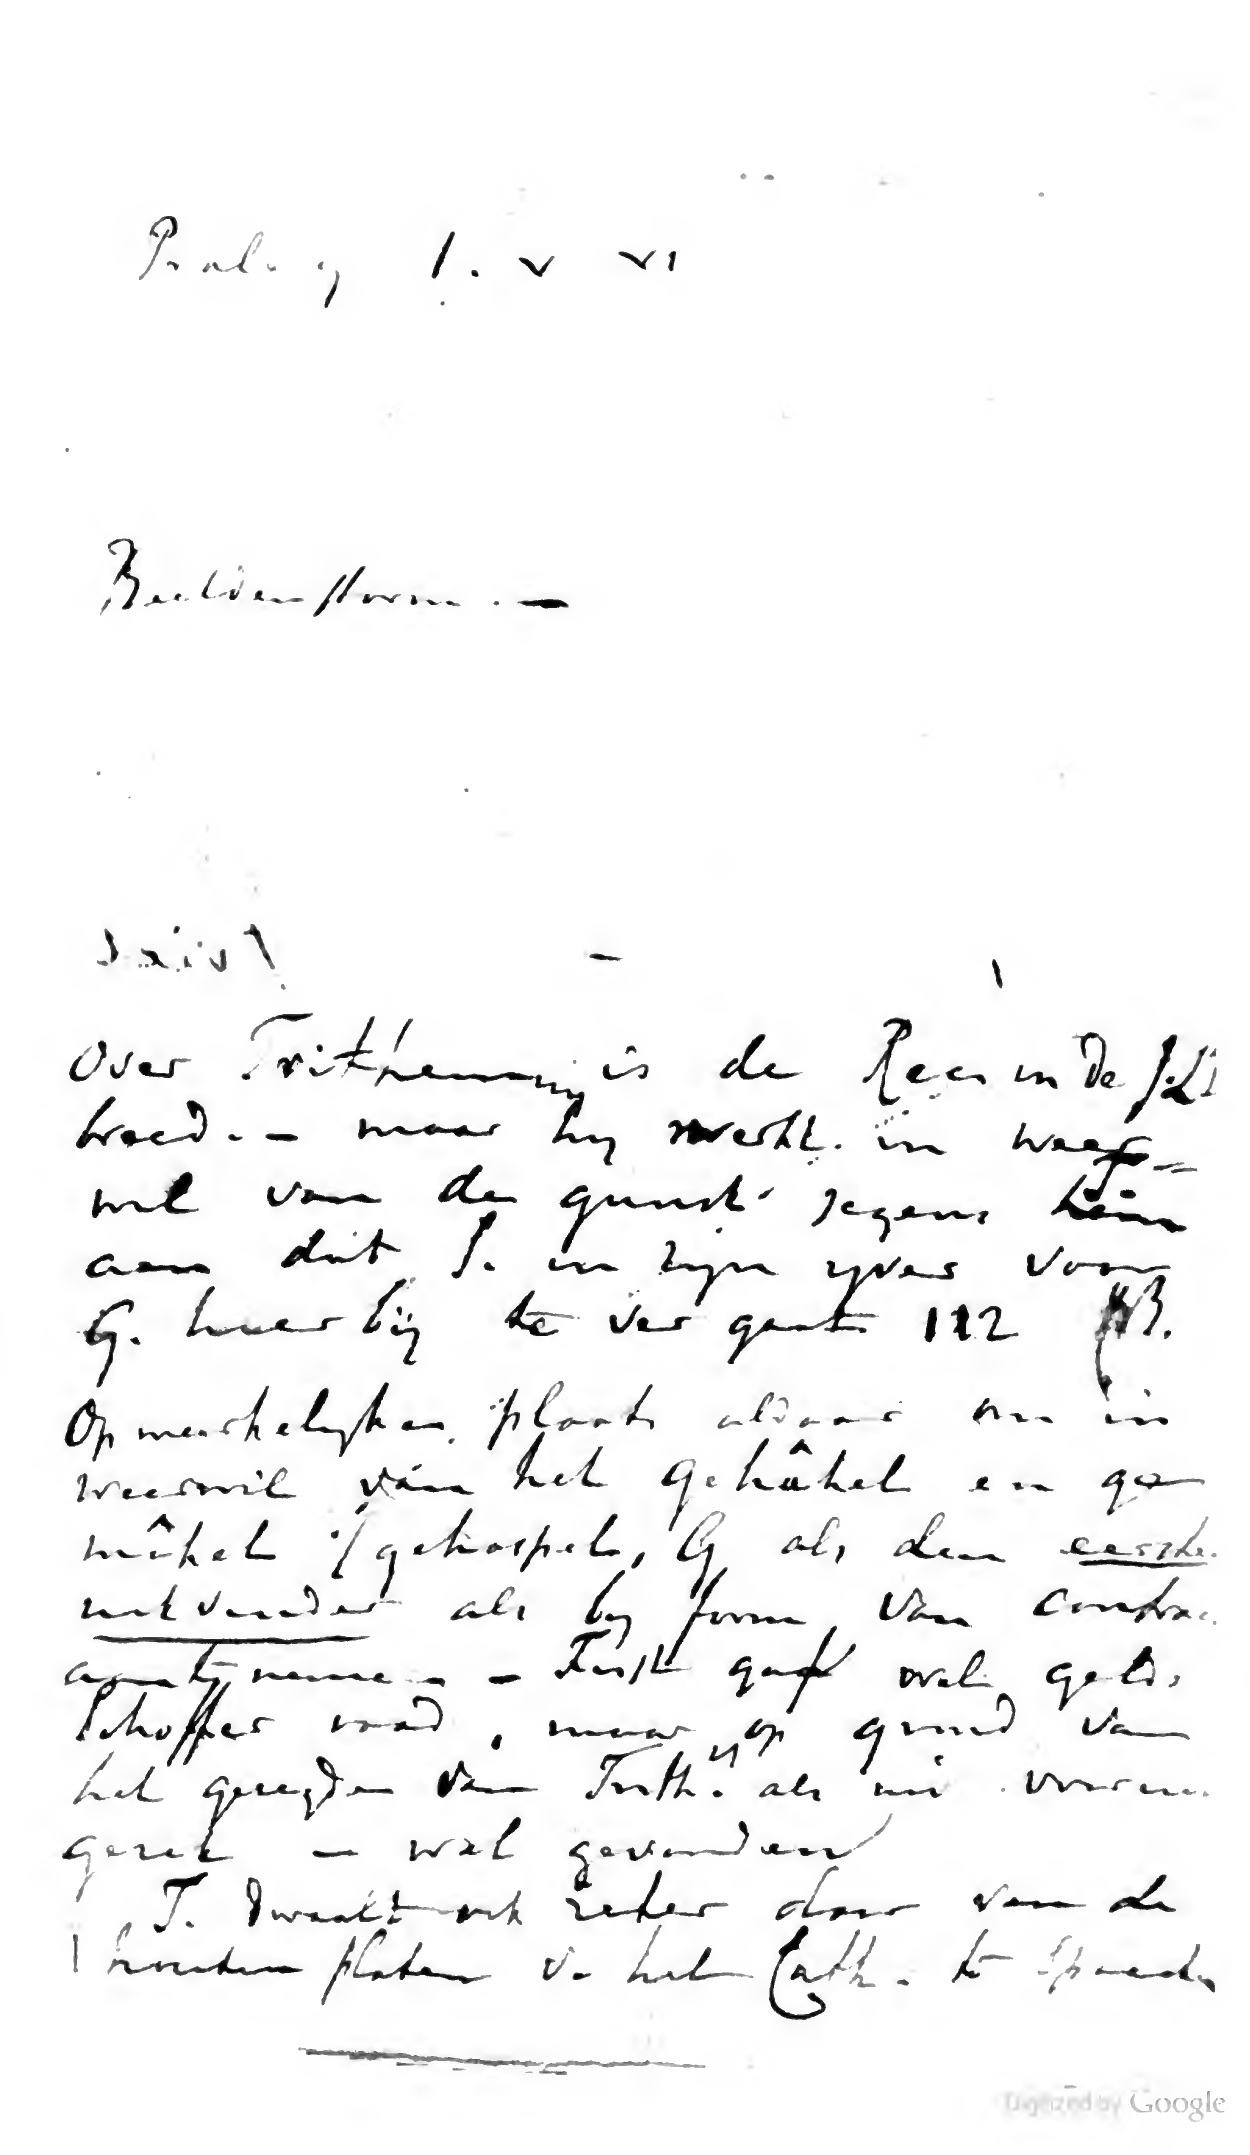 Prolog I. V VI
Beeldenstorm. —
Over Trithemius is de Rec in de
breed. — maar hij merkt in weer=
wil van de gunst jegens hem
aan dat S. in zijn ijver voor
G. hierbij te ver gaat 112 NB.
Opmerkelijke plaats aldaar om in
weerwil van het gehâkel en ge
mâkel / gehaspel, G als den eerste
uitvinder als bij form van contra
aan te nemen. — Fust gaf wel geld,
Schoffer raad, maar op grond van
het gezegde van Trith. als
gezet — wel gevonden
T. dwaalt ook zeker door van de
houten platen v. het Cath. te
Digitized by Google